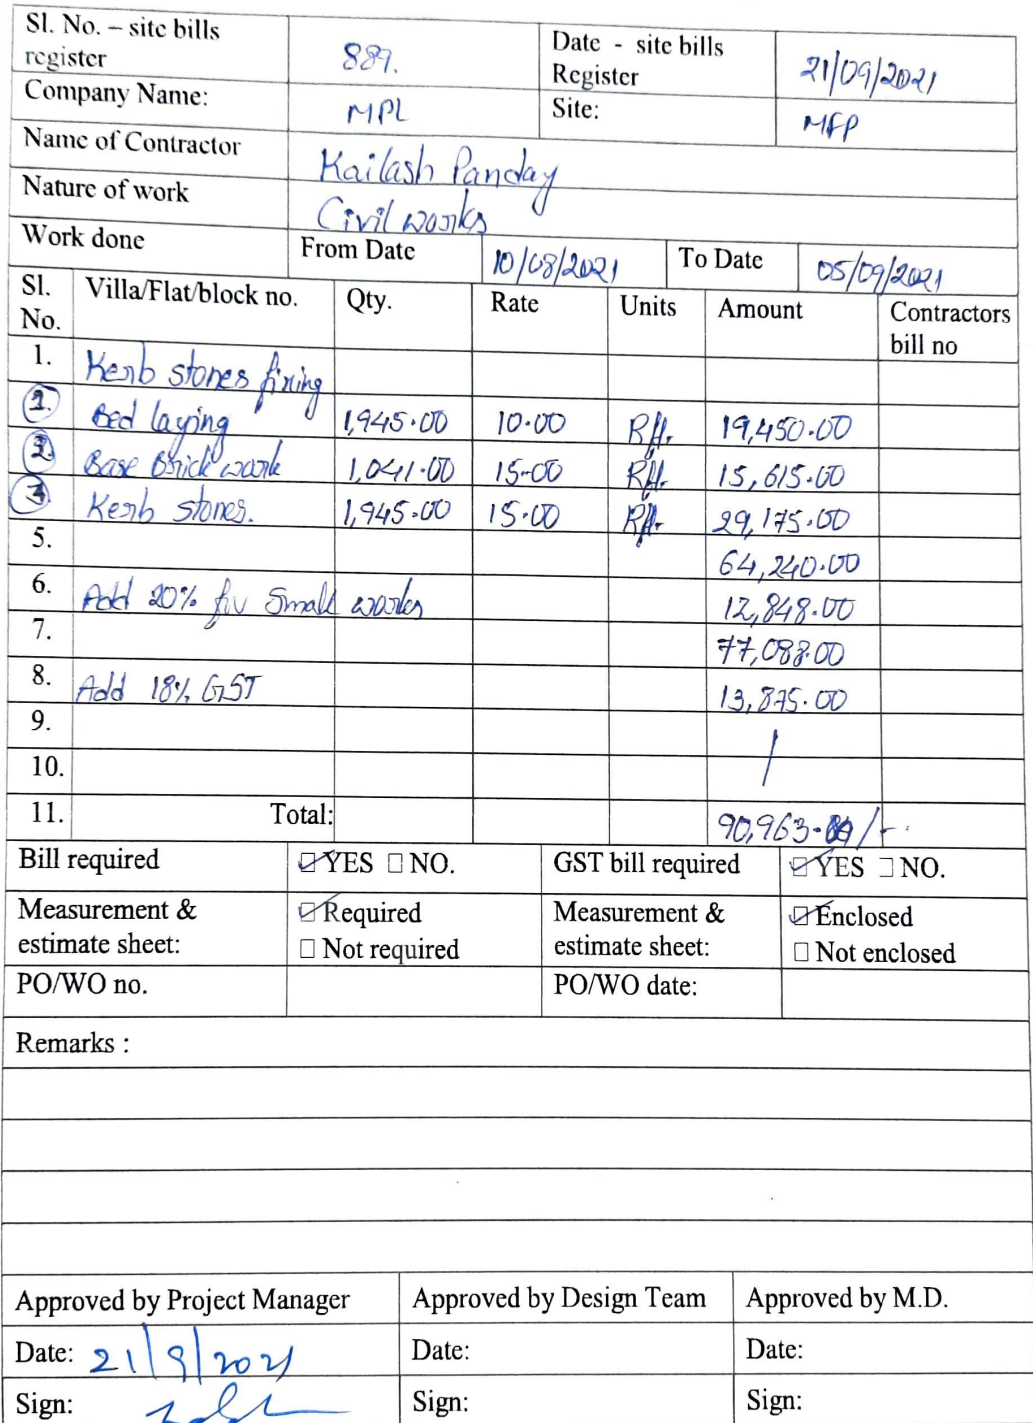 Sl. No. – site bills register 889. Date - site bills Register 21/09/2021
Company Name: MPL Site: MFP
Name of Contractor Kailash Panday
Nature of work Civil works
Work done From Date 10/08/2021 To Date 05/09/2021
Sl. No. Villa/Flat/block no. Qty. Rate Units Amount Contractors bill no
1. Kerb stones fixing
1. Bed laying 1,945.00 10.00 Rft. 19,450.00
2. Base Brick work 1,041.00 15.00 Rft. 15,615.00
3. Kerb stones. 1,945.00 15.00 Rft. 29,175.00
5. 64,240.00
6. Add 20% for Small works 12,848.00
7. 77,088.00
8. Add 18% GST 13,875.00
9.
10.
11. Total: 90,963.00/-
Bill required ☑ YES ☐ NO. GST bill required ☑ YES ☐ NO.
Measurement & estimate sheet: ☑ Required ☐ Not required Measurement & estimate sheet: ☑ Enclosed ☐ Not enclosed
PO/WO no. PO/WO date:
Remarks :
Approved by Project Manager Approved by Design Team Approved by M.D.
Date: 21/9/2021 Date: Date:
Sign: Sign: Sign: